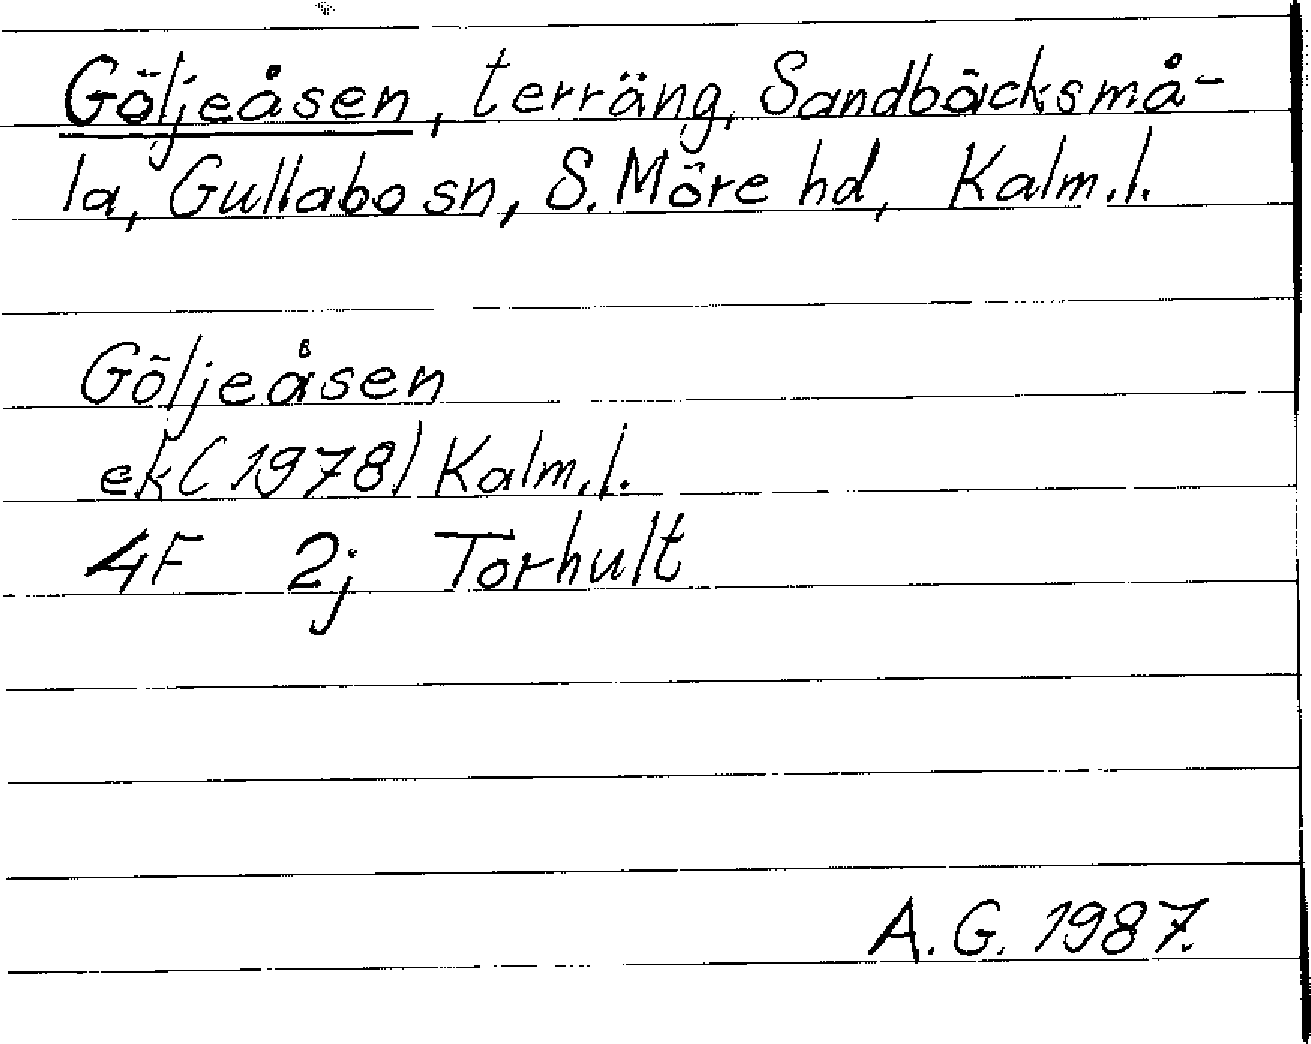 Göljeåsen, terräng, Sandbäcksmå-
la, Gullabo sn, S. Möre hd, Kalm. l.
Göljeåsen
ek (1978) Kalm. l.
4F 2j Torhult
A. G. 1987.